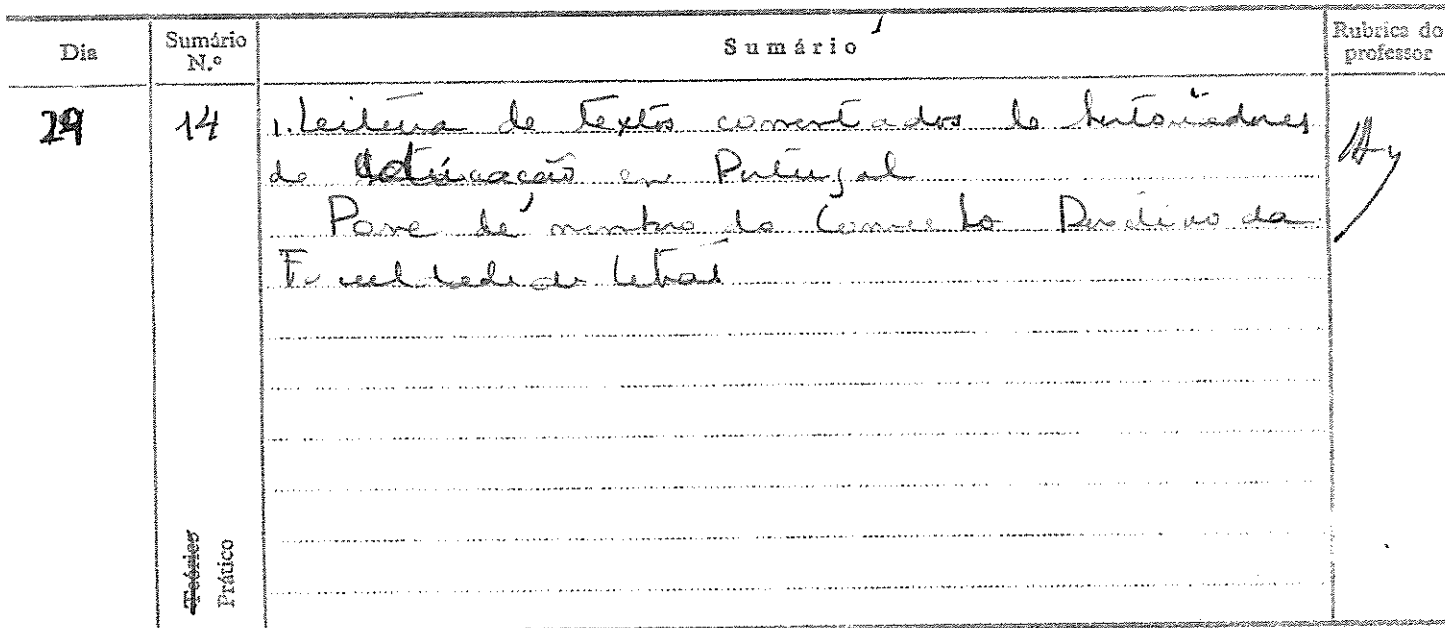 Dia
Sumário N.º
Sumário
Rubrica do professor
29
14
1. Leitura de textos comentados de historiadores
de educação em Portugal
Posse de membro do Conselho Directivo da
Faculdade de Letras
Teórico
Prático